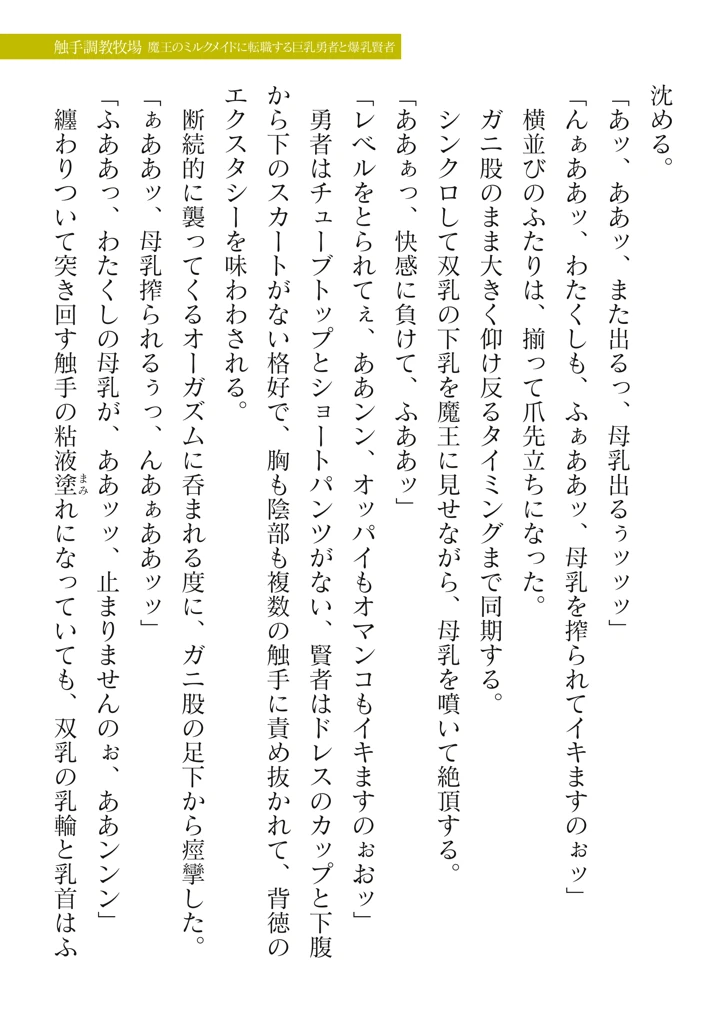 触手調教牧場 魔王のミルクメイドに転職する巨乳勇者と爆乳賢者
沈める。
「あッ、ああッ、また出るっ、母乳出るぅッッッ」
「んぁああッ、わたくしも、ふぁああッ、母乳を搾られてイキますのぉッ」
横並びのふたりは、揃って爪先立ちになった。
ガニ股のまま大きく仰け反るタイミングまで同期する。
シンクロして双乳の下乳を魔王に見せながら、母乳を噴いて絶頂する。
「ああぁっ、快感に負けて、ふああッ」
「レベルをとられてぇ、ああンン、オッパイもオマンコもイキますのぉおッ」
勇者はチューブトップとショートパンツがない、賢者はドレスのカップと下腹
から下のスカートがない格好で、胸も陰部も複数の触手に責め抜かれて、背徳の
エクスタシーを味わわされる。
断続的に襲ってくるオーガズムに呑まれる度に、ガニ股の足下から痙攣した。
「ぁああッ、母乳搾られるぅっ、んあぁああッッ」
「ふああっ、わたくしの母乳が、ああッッ、止まりませんのぉ、ああンンン」
纏わりついて突き回す触手の粘液塗まみれになっていても、双乳の乳輪と乳首はふ